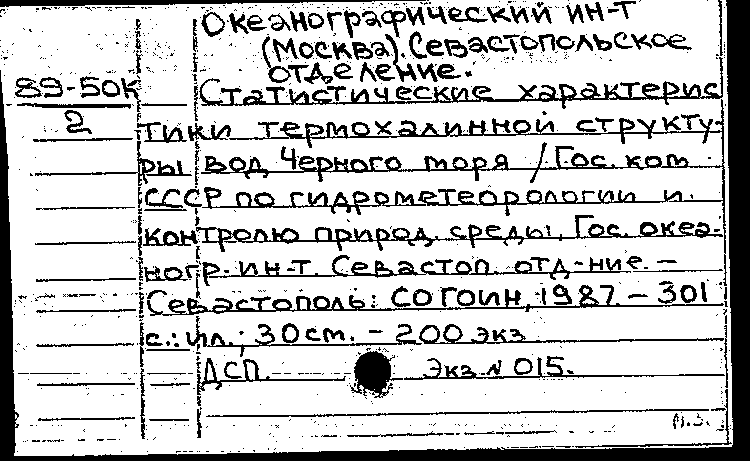 Океанографический ин-т
(Москва). Севастопольское
отделение.
89-50К
2
Статистические характерис
тики термохалинной структу-
ры вод Черного моря / Гос. ком.
СССР по гидрометеорологии и
контролю природ. среды, Гос. океа-
ногр. ин-т. Севастоп. отд-ние. –
Севастополь: СО ГОИН, 1987. – 301
с.: ил.; 30 см. – 200 экз
ДСП. Экз N 015.